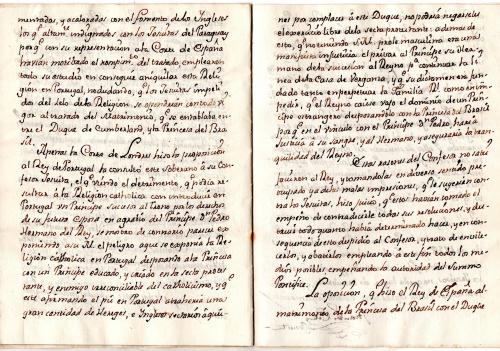 mentadas, y acaloradas con el fomento de los Ingleses
los q.e altam.te indignados con los Jesuitas del Paraguay
porq.e con su representacion a la Corte de España
havian motivado el rompim.to del tratado emplearon
todo su estudio en conseguir aniquilar esta Reli-
gion en Portugal, no dudando, q.e los Jesuitas impeli-
dos del zelo de la Religion se opondrian con todo vi-
gor al tratado de Matrimonio, q.e se entablaba en-
tre el Duque de Cumberland, y la Princesa del Bra-
sil.
Apenas la Corte de Londres hizo la proposicion
al Rey de Portugal la consultó este Soberano a su Con-
fesor Jesuita, el q.e viendo el detrimento, q.e podia re-
sultar a la Religion catholica con introducir en
Portugal un Principe sucesor al Reino por los derechos
de su futura Esposa en agravio del Principe D.n Pedro
Hermano del Rey, se mostro de contrario parecer ex-
poniendo a su M. el peligro a que se exponia la Re-
ligion catholica en Portugal desposando a la Princesa
con un Principe educado, y criado en la secta protes-
tante, y enemigo irreconciliable del catholicismo, y q.e
este afirmando el pie en Portugal atraheria una
gran cantidad de Hereges, e Ingleses sectarios a quie-
nes por complacer a este Duque, no podria negarseles
el exercicio libre de la secta protestante: ademas de
esto, q.e no teniendo S.M. prole masculina era una
manifiesta injusticia el privar al Principe su Her-
mano de la sucesion al Reyno p.a continuar la li-
nea de la Casa de Verganza, y q.e su dictamen era fun-
dado tanto en perpetuar la Familia R.l como en im-
pedir, q.e el Reyno caiese vajo el dominio de un Prin-
cipe estrangero desposandolo con la Princesa del Brasil
pues en el vinculo con el Principe D.n Pedro hacia
Justicia a su sangre, y al Hermano, y aseguraba la tran-
quilidad del Reyno.
Estas razones del Confesor no satis-
facieron al Rey, y tomandolas en diverso sentido pre-
ocupado ya de las malas impresiones, q.e le sugerian con-
tra los Jesuitas, hizo juicio, q.e estos havian tomado el
empeño de contradecirle todas sus resoluciones, y des-
hacer todo quanto havia determinado hacer, y en con-
sequencia de esto despidió al Confesor, y trató de envile-
cerlos, y abatirlos empleando a este fin todos los me-
dios posibles, empeñando la autoridad del Summo
Pontifice.
La oposicion, q.e hizo el Rey de España al
matrimonio de la Princesa del Brasil con el Duque